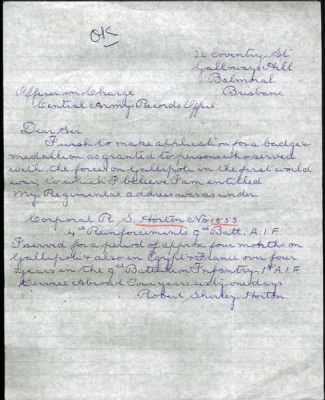 OK
26 Coventry St
Galloways Hill
Balmoral
Brisbane
Officer in Charge
Central Army Records Office
Dear Sir
I wish to make application for a badge &
medallion as granted to persons who served
with the force on Gallipoli in the first world
war, to which I believe I am entitled
My Regimental address was as under
Corporal R. S. Horton No 1853
4th Reinforcements 9th Batt. A.I.F.
I served for a period of approx four months on
Gallipoli & also in Egypt & France over four
years in the 9th Battalion Infantry. 1st A.I.F.
Service Abroad Four years sixty one days
Robert Shirley Horton